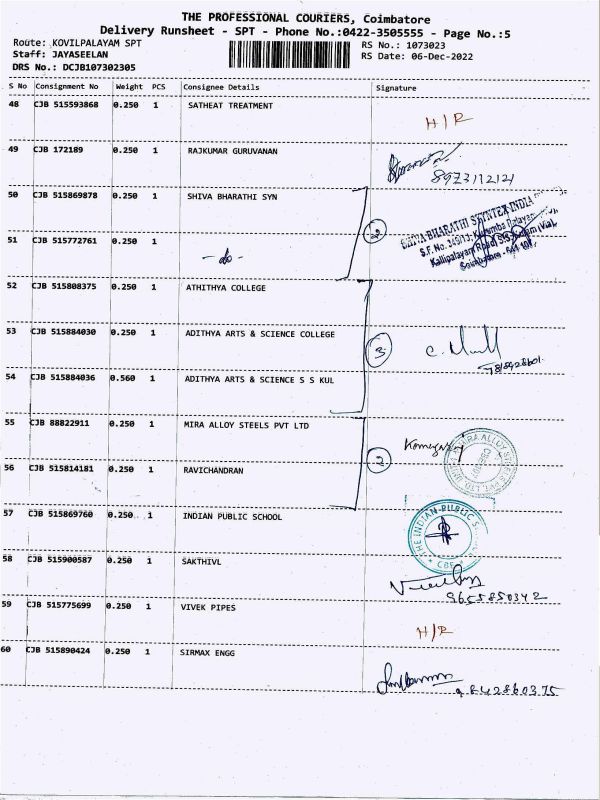 THE PROFESSIONAL COURIERS, Coimbatore
Delivery Runsheet - SPT - Phone No.:0422-3505555 - Page No.:5
Route: KOVILPALAYAM SPT
RS No.: 1073023
Staff: JAYASEELAN
RS Date: 06-Dec-2022
DRS No.: DCJB107302305
S No Consignment No Weight PCS Consignee Details Signature
48 CJB 515593868 0.250 1 SATHEAT TREATMENT
H/R
49 CJB 172189 0.250 1 RAJKUMAR GURUVANAN
8973112121
50 CJB 515869878 0.250 1 SHIVA BHARATHI SYN
2
SHIVA BHARATHI SYNTEX INDIA
51 CJB 515772761 0.250 1 -do-
52 CJB 515808375 0.250 1 ATHITHYA COLLEGE
53 CJB 515884030 0.250 1 ADITHYA ARTS & SCIENCE COLLEGE
3
54 CJB 515884036 0.560 1 ADITHYA ARTS & SCIENCE S S KUL
55 CJB 88822911 0.250 1 MIRA ALLOY STEELS PVT LTD
2
56 CJB 515814181 0.250 1 RAVICHANDRAN
57 CJB 515869760 0.250 1 INDIAN PUBLIC SCHOOL
THE INDIAN PUBLIC
58 CJB 515900587 0.250 1 SAKTHIVL
9655850342
59 CJB 515775699 0.250 1 VIVEK PIPES
H/R
60 CJB 515890424 0.250 1 SIRMAX ENGG
9842860375